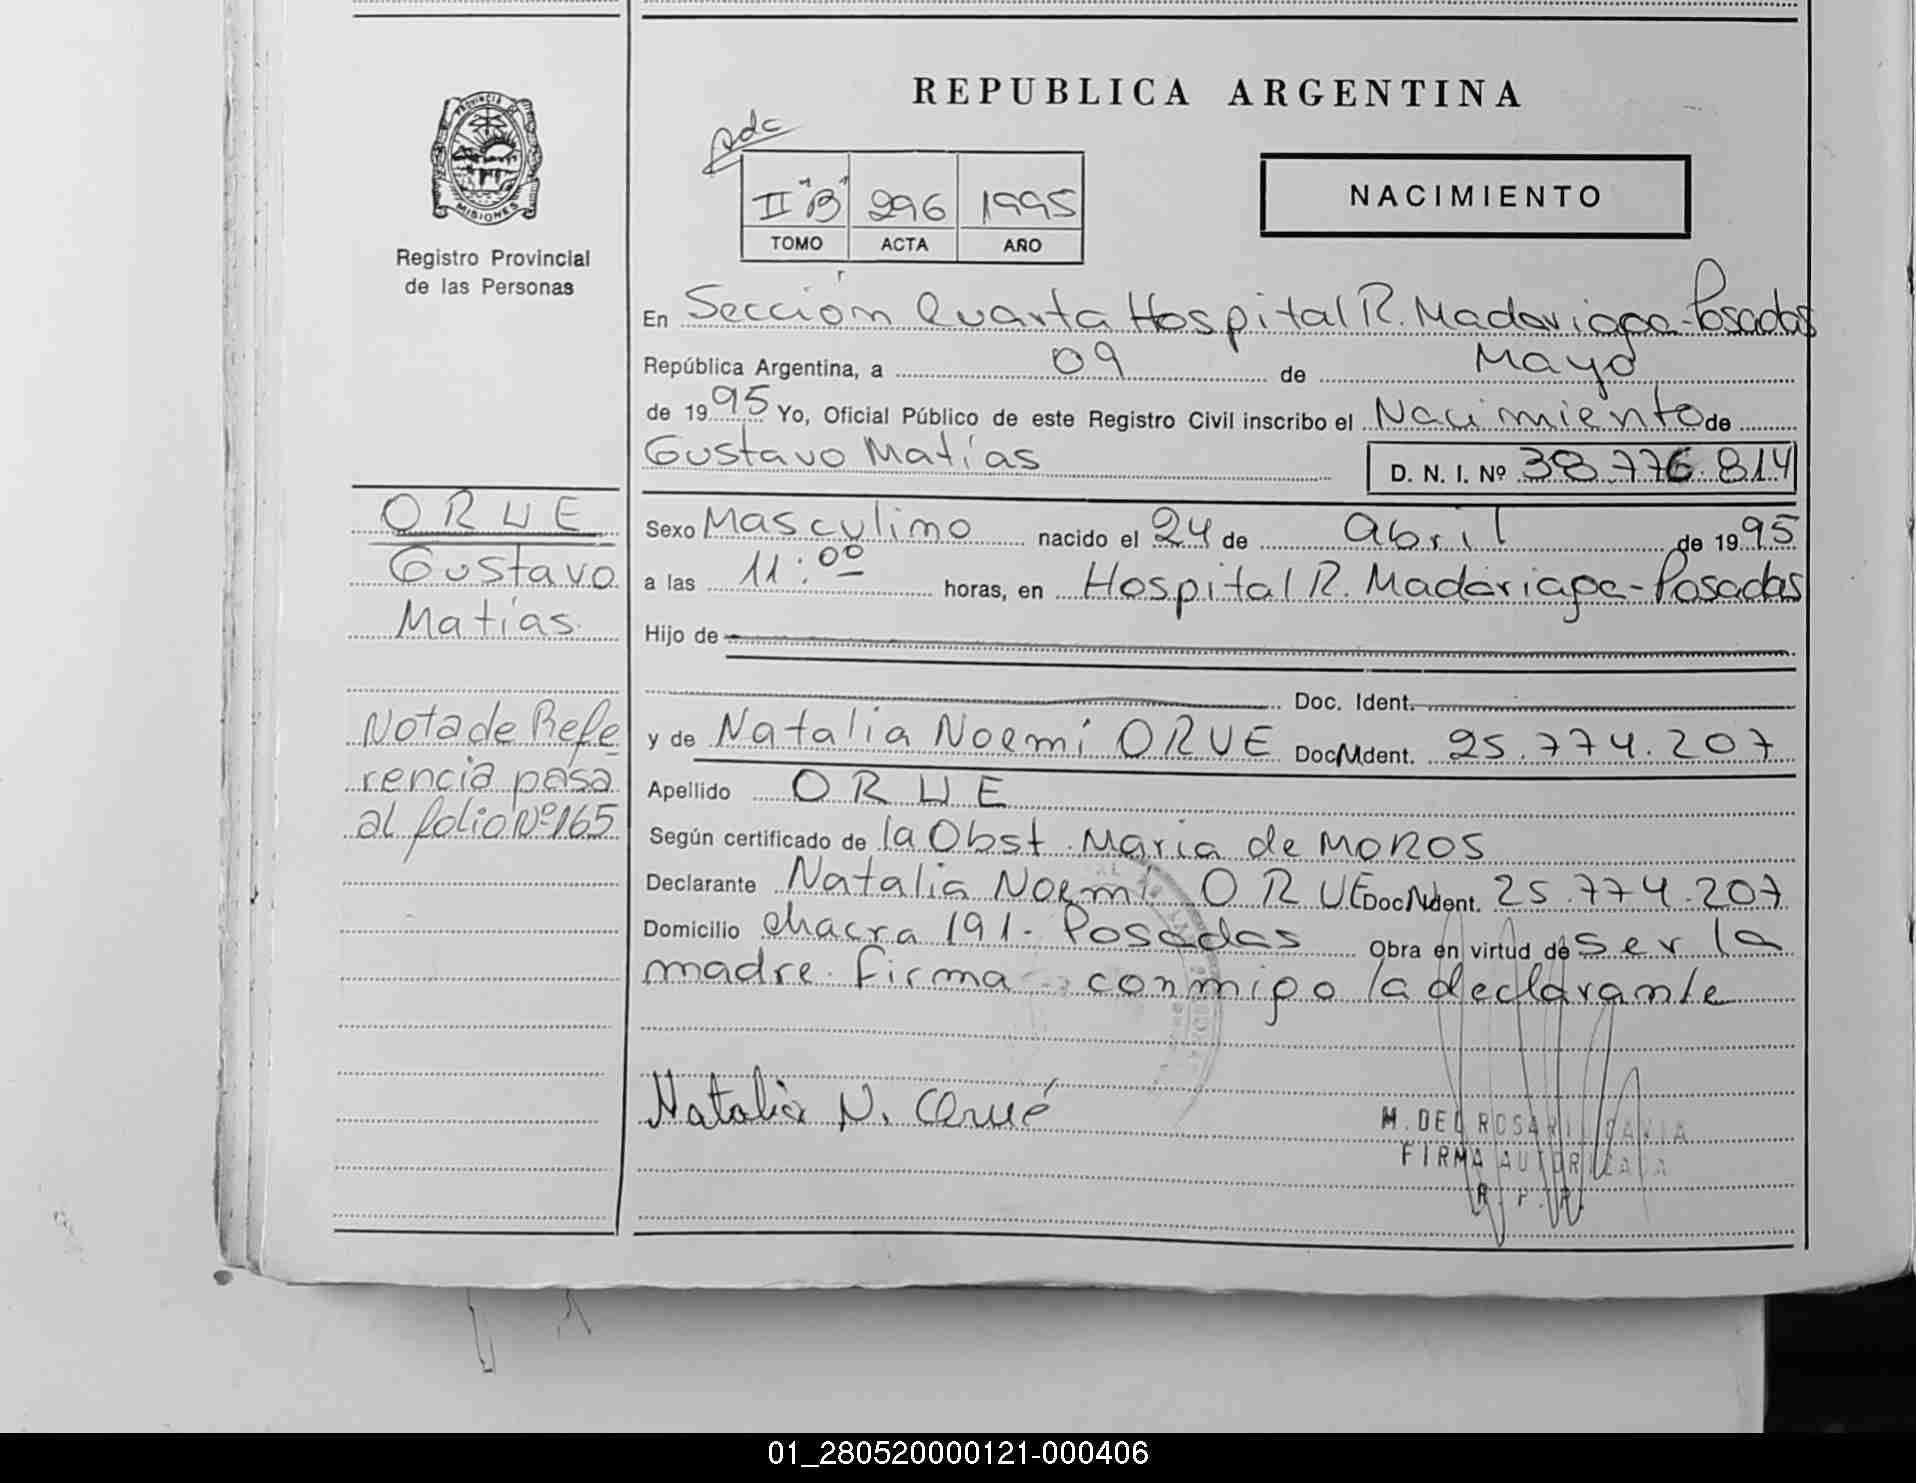 REPUBLICA ARGENTINA
PROVINCIA
MISIONES
Registro Provincial
de las Personas
II "B" 296 1995
TOMO ACTA AÑO
NACIMIENTO
En Sección Quarta Hospital R. Madariaga - Posadas
República Argentina, a 09 de Mayo
de 1995 Yo, Oficial Público de este Registro Civil inscribo el Nacimiento de
Gustavo Matías D. N. I. Nº 38.776.814
ORUE
Gustavo
Matías.
Sexo Masculino nacido el 24 de abril de 1995
a las 11:00 horas, en Hospital R. Madariaga - Posadas
Hijo de
Doc. Ident.
y de Natalia Noemí ORUE Doc. Ident. 25.774.207
Nota de Refe
rencia pasa
al folio Nº 165
Apellido ORUE
Según certificado de la Obst. Maria de MOROS
Declarante Natalia Noemí ORUE Doc. Ident. 25.774.207
Domicilio chacra 191 - Posadas Obra en virtud de ser la
madre. Firma conmigo la declarante
Natalia N. Orué
M. DEL ROSARIO
FIRMA AUTORIZADA
R. P. P.
01_280520000121-000406